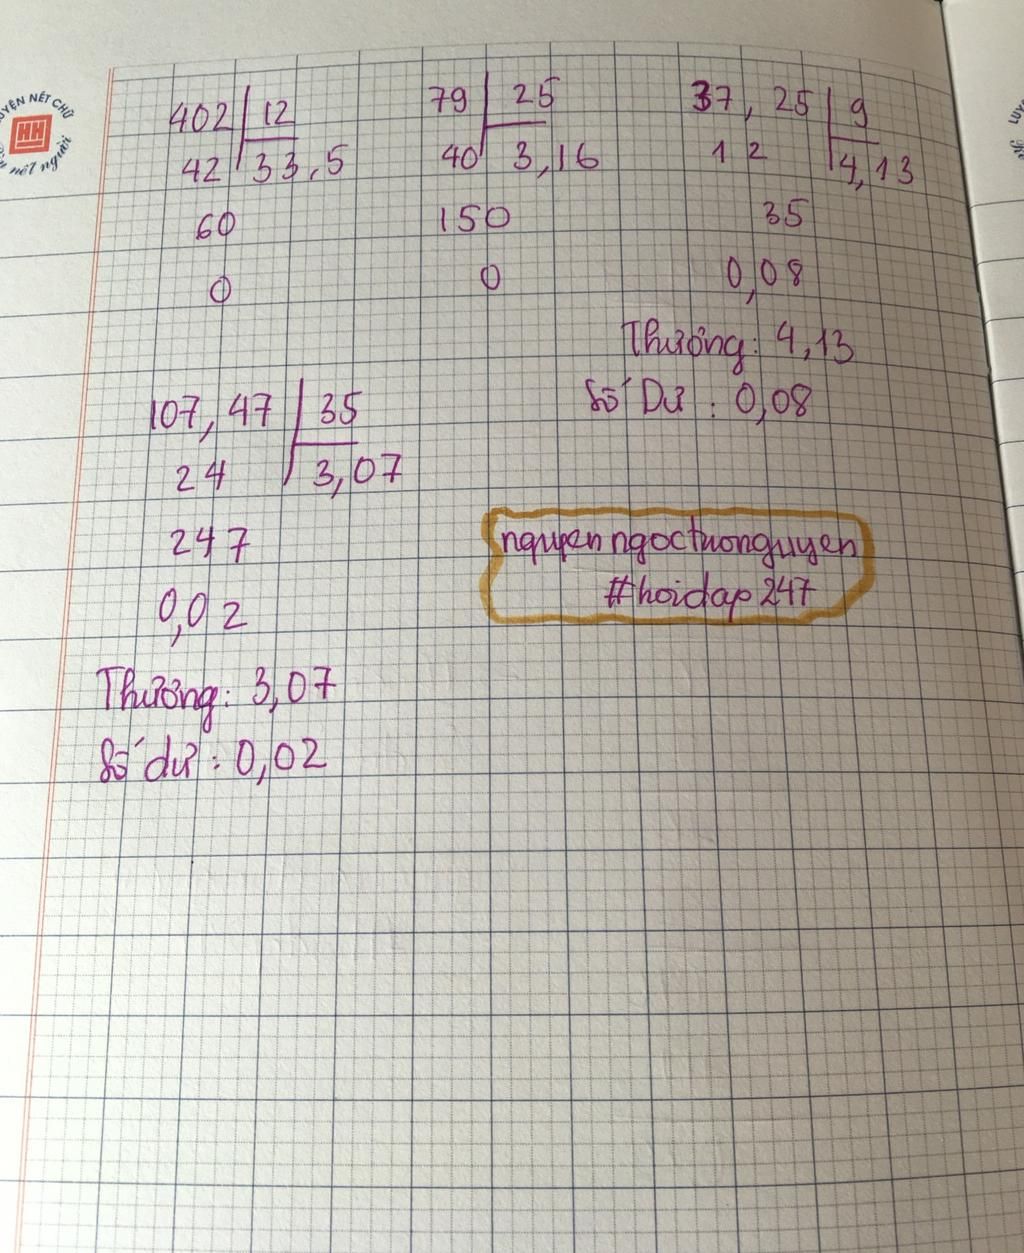 402 12
42 33,5
60
0
79 25
40 3,16
150
0
37,25 9
12 4,13
35
0,08
Thương: 4,13
Số Dư: 0,08
107,47 35
24 3,07
247
0,02
Thương: 3,07
Số dư: 0,02
nguyenngoctuonguyen
#hoidap247
NÉT CHỮ
HH
nết người